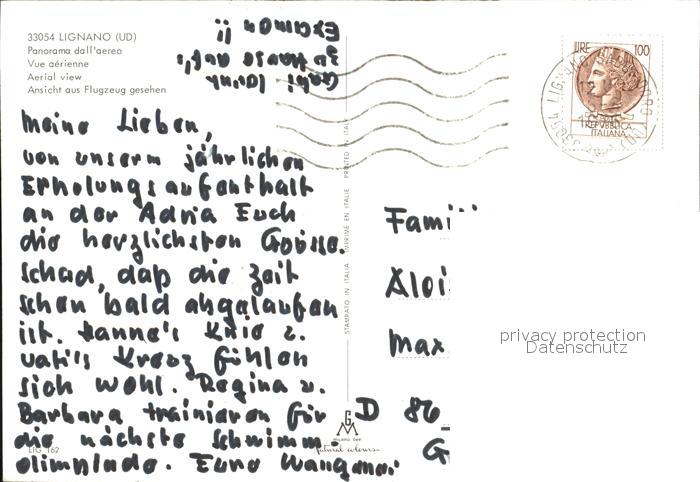 33054 LIGNANO (UD)
Panorama dall'aereo
Vue aérienne
Aerial view
Ansicht aus Flugzeug gesehen
Gabi lernt
zu Hause auf's
Examen !!
Meine Lieben,
von unserm jährlichen
Erholungsaufenthalt
an der Adria Euch
die herzlichsten Grüsse.
Schad, daß die Zeit
schon bald abgelaufen
ist. Hanne's Knie u.
Vati's Kreuz fühlen
sich wohl. Regina u.
Barbara trainieren für
die nächste Schwimm-
olimpiade. Eure
LIG 162
STAMPATO IN ITALIA IMPRIMÉ EN ITALIE PRINTED IN ITALY
GM
Natural colours
LIRE 100
REPVBBLICA
ITALIANA
33054 LIGNANO SABBIADORO (UD)
Fami
Aloi
Max
D 86
G
privacy protection
Datenschutz